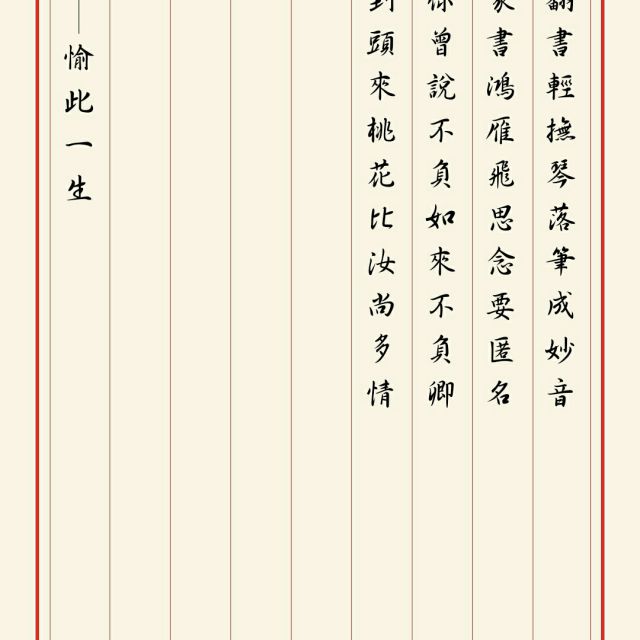 翻書輕撫琴落筆成妙音
家書鴻雁飛思念要匿名
你曾說不負如來不負卿
到頭來桃花比汝尚多情
愉此一生